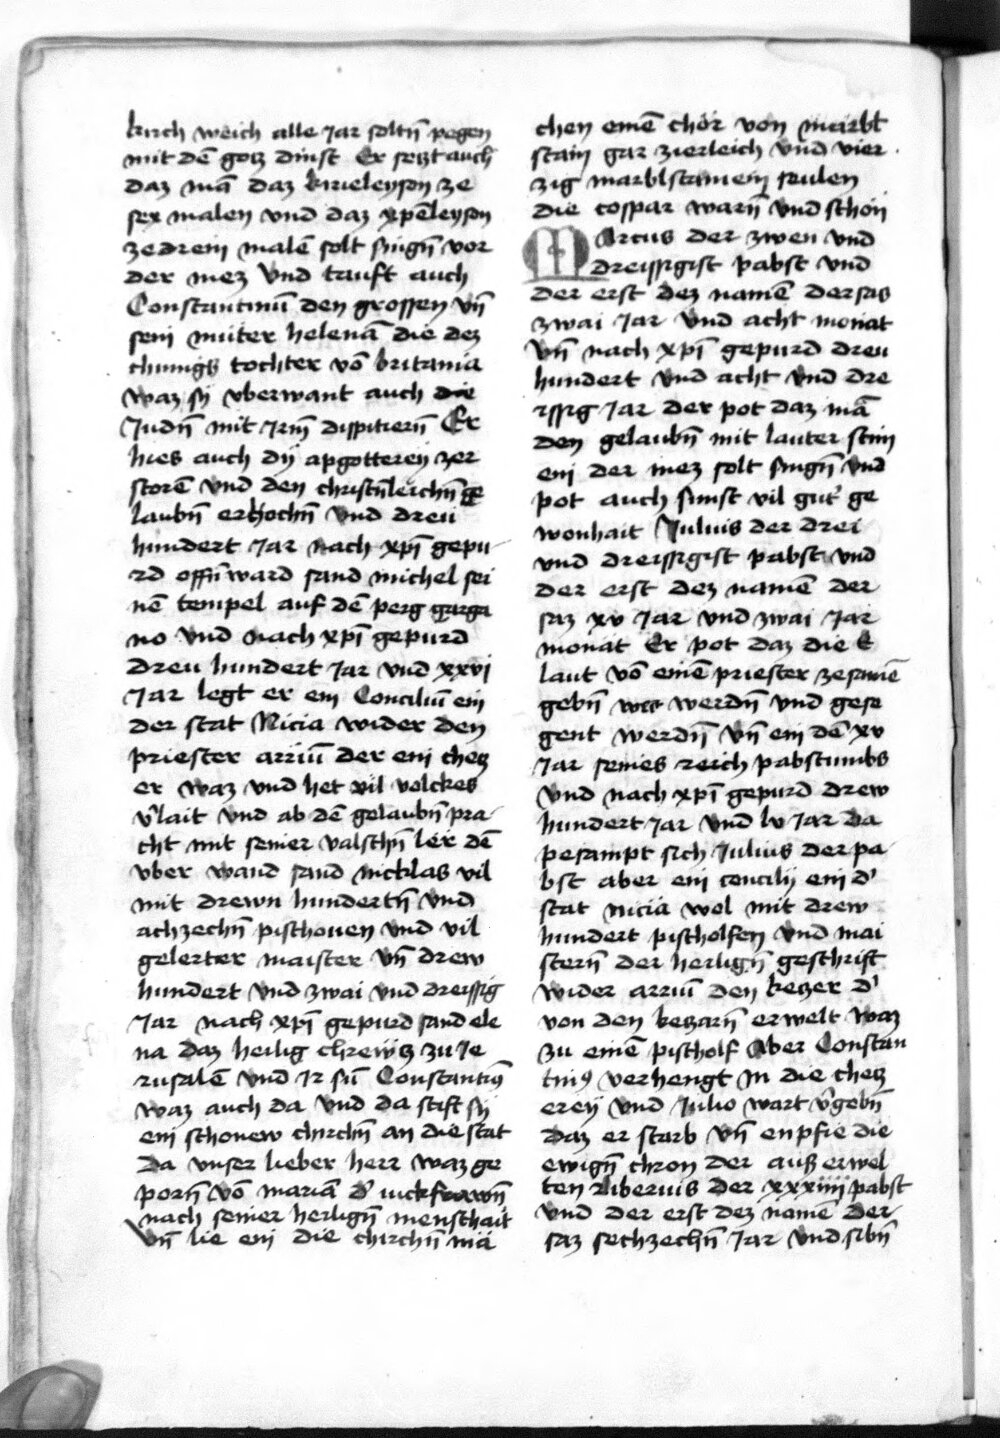 kirch weich alle Jar soltn̄ pegen
mit dē gotz dinst Er setzt auch
daz mā daz kirieleyson ze
sex malen vnd daz xp̄eleyson
ze drein malē solt singn̄ vor
der mez Vnd tauft auch
Constantinū den grossen vn̄
sein muter helenā die dez
chunigs tochter vō britania
waz sy vberwant auch die
Judn̄ mit Jrm̄ dispitiern̄ Er
hies auch dy apgotterey zer
storē vnd den christnleichn̄ ge
laubn̄ erhochn̄ vnd dreu
hundert Jar nach xp̄i gepu
rd offn̄ ward sand michel sei
nē tempel auf dē perg garga
no vnd nach xp̄i gepurd
dreu hundert Jar vnd xxvi
Jar legt er ein Conciliū ein
der stat Nicia wider den
priester arriū der ein chetz
er waz vnd het vil volckes
v̄lait vnd ab dē gelaubn̄ pra
cht mit seiner valschn̄ ler dē
vber wand sand nicklas vil
mit drewn hundertn̄ vnd
achzechn̄ pischouen vnd vil
gelerter maister vn̄ drew
hundert vnd zwai vnd dreissig
Jar nach xp̄i gepurd sand ele
na daz heilig chrewtz zu Je
rusalē vnd Jr sū Constantinꝰ
waz auch da vnd da stift sy
ein schonew chirchn̄ an die stat
da vnser lieber herr waz ge
porn̄ vō mariā d' iuckfrawn̄
nach seiner heilign̄ menschait
Vn̄ lie ein die chirchn̄ mā
chen einē chor von marbl
stain gar zierleich vnd vier
zig marblstainein seulen
die cospar warn̄ vnd schon
MArcus der zwen vnd
dreissigist pabst vnd
der erst dez namē der sas
zwai Jar vnd acht monat
vn̄ nach xp̄i gepurd dreu
hundert vnd acht vnd dre
issig Jar der pot daz mā
den gelaubn̄ mit lauter stim
ein der mez solt singn̄ vnd
pot auch sunst vil gut' ge
wonhait Juluis der drei
vnd dreissigist pabst vnd
der erst dez namē der
saz xv Jar vnd zwai Jar
monat Er pot daz die E
laut vō einē priester ze samē
gebn̄ werdn̄ vnd gese
gent werdn̄ vn̄ ein dē xv
Jar seines reich pabstumbs
vnd nach xp̄i gepurd drew
hundert Jar vnd lv Jar da
pesampt sich Julius der pa
bst aber ein concilij ein d'
stat nicia wol mit drew
hundert pischolfen vnd mai
stern̄ der heilign̄ geschrift
wider arriū den ketzer d'
von den ketzarn̄ erwelt waz
zu einē pischolf Aber Constan
tinꝰ verhengt Jn die chetz
erey vnd Julio wart v̄gebn̄
daz er starb vn̄ enpfie die
ewign̄ chron der auß erwel
ten Liberuis der xxxiiii pabst
vnd der erst dez namē der
saz sechzechn̄ Jar vnd sibn̄